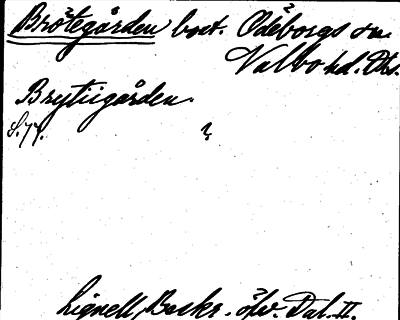 Brötegården boet. Ödeborgs sn
Valbo hd. Dls.
Brytiigården
S. 77.
Lignell, Beskr. öfv. Dal. II.